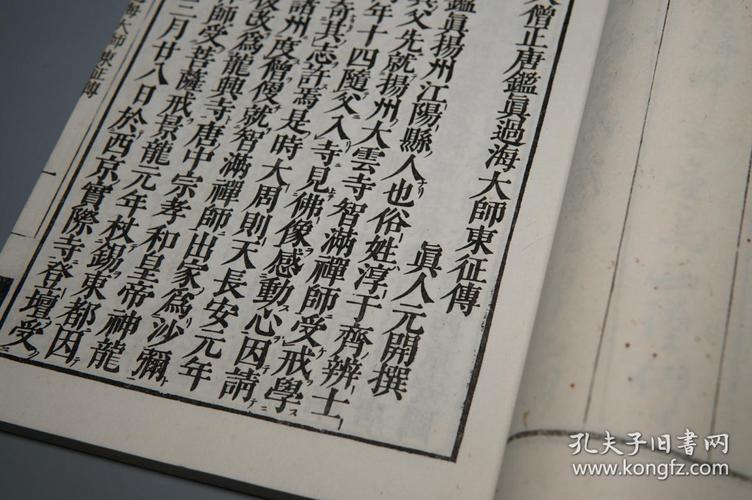 僧正唐鑑眞過海大師東征傳
眞人元開撰
鑑眞揚州江陽縣人也俗姓淳于齊辨士
其父先就揚州大雲寺智滿禪師受戒學
年十四隨父入寺見佛像感動心因請
奇其志許焉是時大周則天長安元年
諸州度僧便就智滿禪師出家爲沙彌
改爲龍興寺唐中宗孝和皇帝神龍
師受菩薩戒景龍元年杖錫東都因
三月廿八日於西京實際寺登壇受
海大師東征傳
一
孔夫子旧書网
www.kongfz.com